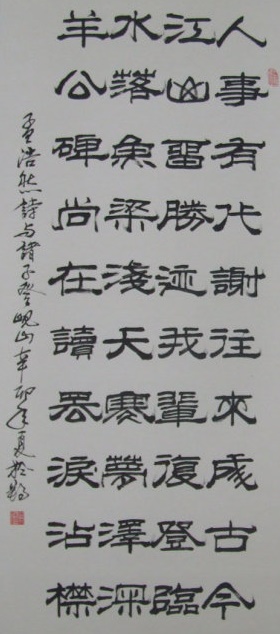 人事有代謝往來成古今
江山留勝迹我輩復登臨
水落魚梁淺天寒夢澤深
羊公碑尚在讀罷淚沾襟
孟浩然詩与諸子登峴山辛卯年夏於